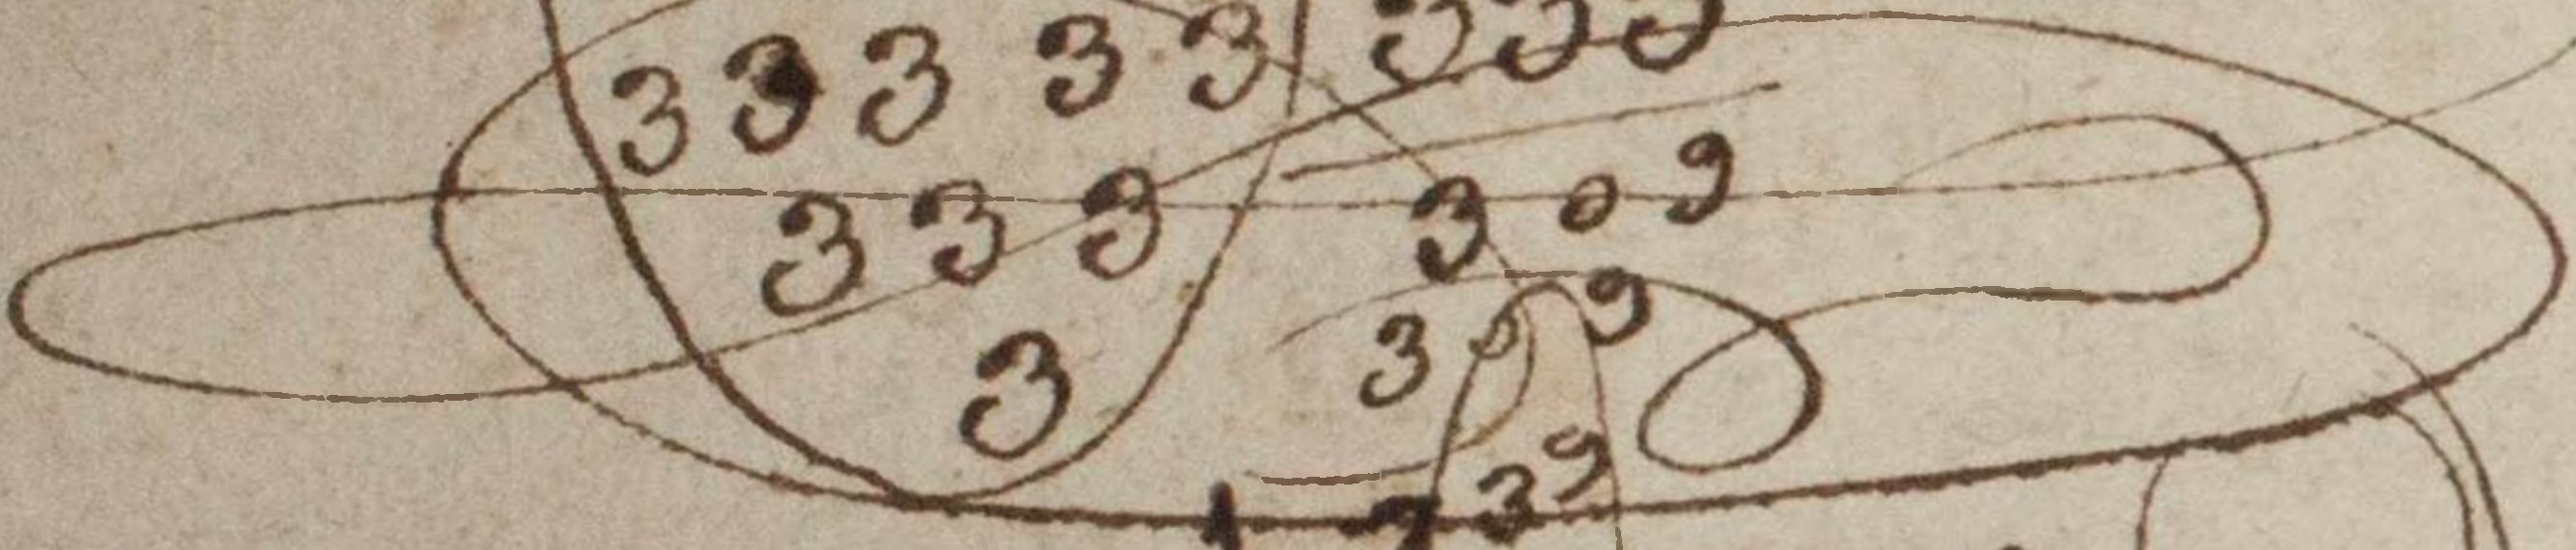 3 3 3 3 3 3 3 3
3 3 3 3 0 9
3 3 0 9
3 9